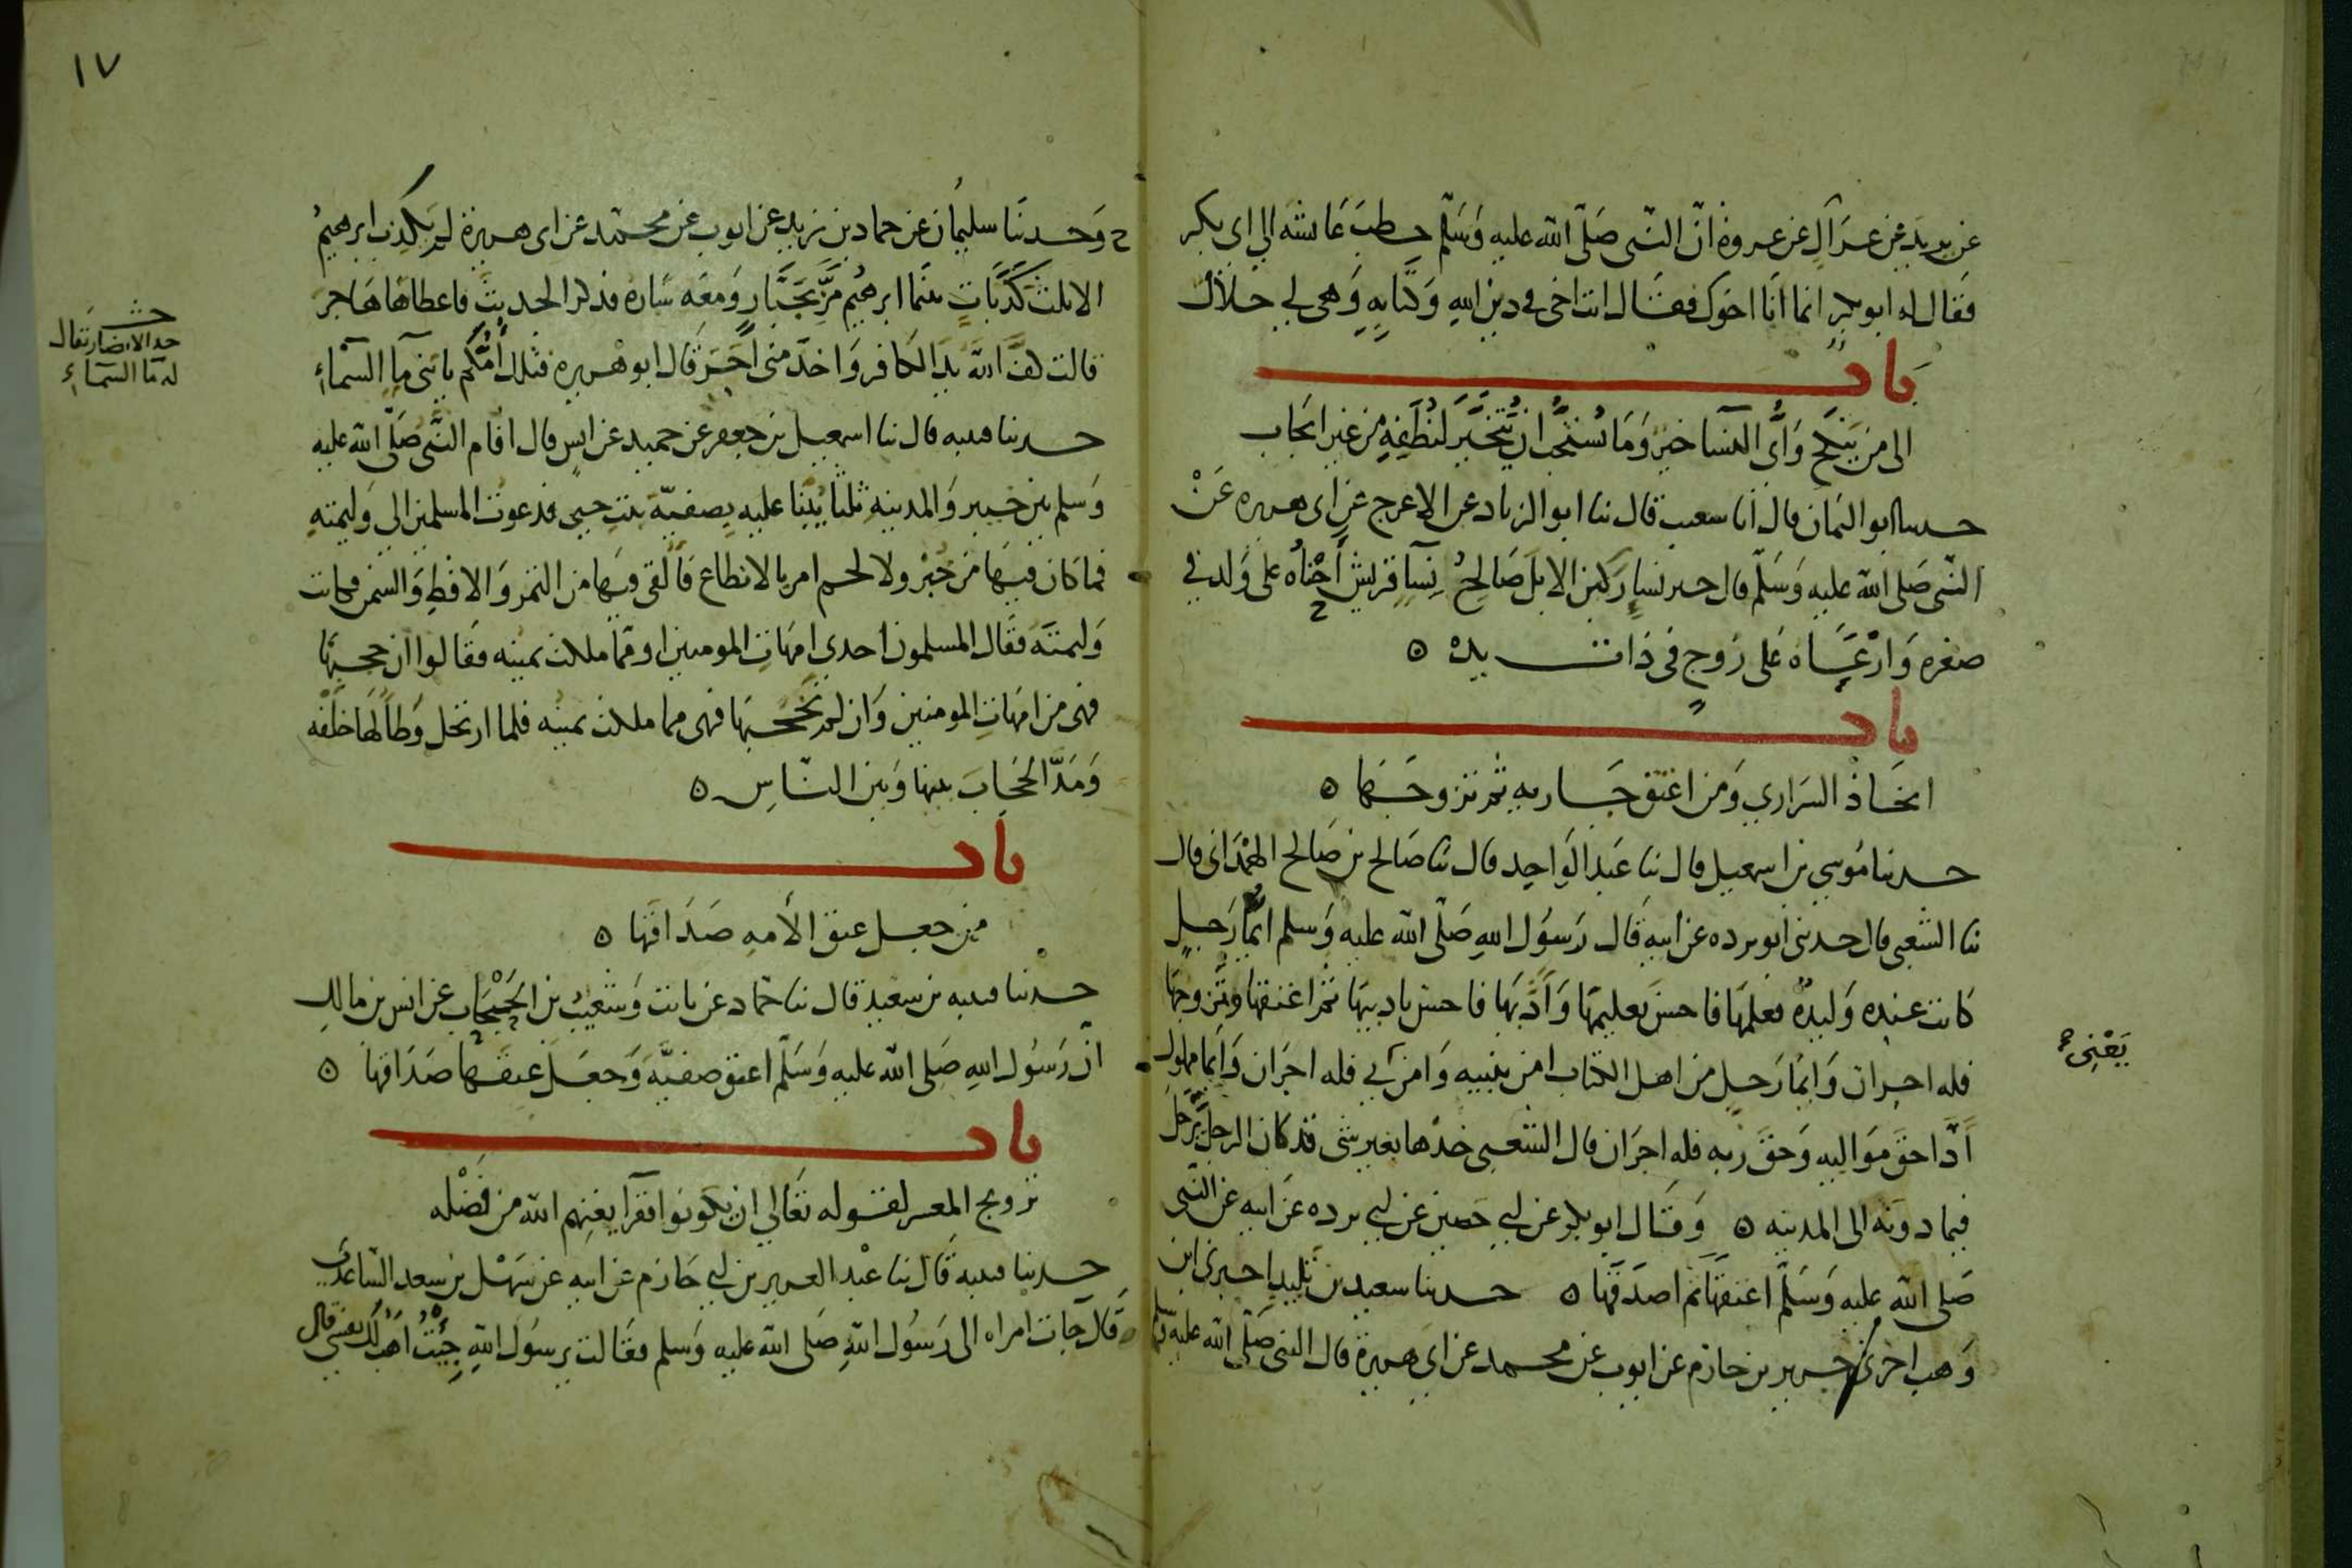 عن يزيد عن عراك عن عروة ان النبي صَلّى الله عليه وَسَلّم خطب عَائشه الي ابي بكر
فقال له ابو بكر انما انَا اخوك فقال انت اخي في دين اللهِ وَكتابِهِ وَهي لي حلال
بَاب
الى من يَنكح وَأيُّ النسا خير وَمَا يُستحَبُّ ان يَتخيَّرَ لنُطَفِهِ من غير ايجاب
حدثنا ابو اليمان قال انا شعيب قال ثنا ابو الزناد عن الاعرج عن ابي هريره عَنْ
النّبي صَلى الله عليه وَسَلّم قال خير نساءٍ ركبن الابل صَالحُ نِسَآءِ قريش أحْناهُ على وَلد في
صغره وَارْعَاه عَلى زوجٍ في ذات يده ٥
بَاب
اتخاذ السّراري وَمن اعتق جَاريه ثم تزوجَهَا ٥
حدثنا مُوسي بن اسمعيل قال ثنا عَبد الوَاحِد قال ثنا صَالح بن صَالح الهمْدَاني قال
ثنا الشعبي قال حدثني ابو برده عن ابيه قال رَسُول اللهِ صَلّى الله عليه وَسلم ايُّما رَجلٍ
كانت عنده وَليدةٌ فعلمَهَا فاحسنَ تعليمَهَا وَأدَّبَهَا فاحسن تاديبهَا ثم اعتقهَا وتزوجهَا
فله اجران وَايمَا رَجلٍ من اهل الكتاب امن بنبيه وَامن بي فله اجرَان وَايمَا مملوك
أدَّا حقَ مَوَاليه وَحقَ ربه فله اجرَان قال الشعبي خذها بغير شي قد كان الرجل يَرحل
يَعْني
فيما دونه الى المدينه ٥ وَقَال ابو بكر عن ابي حَصين عن ابي برده عَن ابيه عن النّبي
صَلى الله عليه وَسَلّم اعتقهَا ثم اصدَقَهَا ٥ حدثنا سعيد بن تليد اخبرني ابن
وَهب اخبرني جرير بن حازم عن ايوب عن محمد عن ابي هريرة قال النبي صَلّى الله عليه وسلم
١٧
ح وَحدثنَا سليمَان عن حماد بن زيد عن ايوب عن محمّد عن ابي هريرة لم يَكذِب ابرهيمُ
الا ثلث كَذَبَاتٍ بينَما ابرهيُم مَرَّ بجَبَّارٍ وَمعَه سَاره فذكر الحديث فاعطاهَا هَاجَر
قالت كفَّ اللهُ يدَ الكافر وَاخدَمني آجَرَ قال ابو هريره فتلك أُمُّكم يا بني مآءِ السّماءِ
حـ
حد الانصار يقال
له مآ السّماءِ
حدثنا قتيبه قال ثنا اسمعيل بن جعفر عن حميد عن انس قال اقام النَّبي صَلّى الله عليه
وَسلم بين خيبر وَالمدينهِ ثلثا يُبْنا عليه بِصفيّة بنتِ حيي فدعوت المسلمين الى وَليمتهِ
فما كان فيهَا مِن خبْزٍ ولا لحم امر بالانطاع فأَلقى فيهَا من التمر وَالاقطِ وَالسّمن فكانت
وَليمتَه فقال المسلمون احدي امهَاتِ المومنين او ممّا ملكت يمينه فقَالوا ان حجبهَا
فهي من امهَاتِ المومنين وَان لم يَحجبهَا فهي مما ملكت يمينه فلما ارتحل وَطأَ لهَا خلفَه
وَمَدَّ الحجَابَ بينها وَبين النّاسِ ٥
بَاب
من جعل عتق الأمهِ صَدَاقهَا ٥
حدثنا قتيبه بن سعيد قال ثنا حمّاد عن ثابت وَشُعيبُ بن الحَبْحَاب عن انس بن مالك
انّ رَسُول اللهِ صَلى الله عليه وَسَلّم اعتق صفيّه وَجعَل عتقَهَا صَدَاقهَا ٥
بَاب
تزويج المعسر لقوله تعَالي ان يكونوا فقرآ يغنهم الله من فَضْله
حدثنا قتيبه قَال ثنا عَبْد العزيز بن ابي حَازم عن ابيه عن سَهْل بن سعد السّاعدي
قَال جات امراه الى رَسُول اللهِ صَلى الله عليه وَسلم فقَالت يرسُول اللهِ جِئْتُ أَهَبُ لك نفسي قال